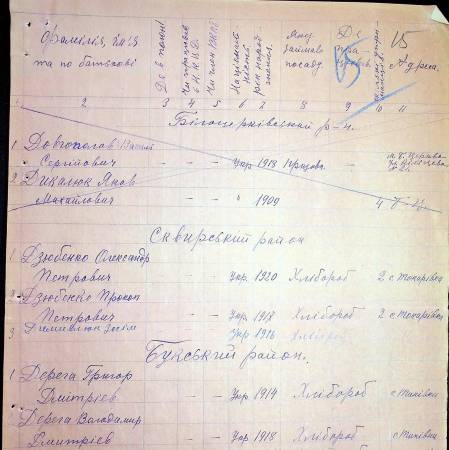 Фамілія, ім'я та по батькові
Де в полоні
Чи працював в Н.К.В.Д.
Чи член ВКПб
Національність
рік народження
Яку займав посаду
15
Адреса.
2 3 4 5 6 7 8 9 10 11
Білоцерківський р-н.
1 Довгополов Василь
Сергійович - - Укр 1918
2 Дикалюк Яков
Михайлович - - " 1909 4
Сквирський район
1 Дзюбенко Олександр
Петрович - - Укр. 1920 Хлібороб 2 с. Токарівка
2 Дзюбенко Прокоп
Петрович - - Укр. 1918 Хлібороб 2 с. Токарівка
3 Укр 1916 Хлібороб
Букський район.
1 Дерега Григор
Дмитрієв - - Укр 1914 Хлібороб
Дерега Володимир
Дмитрієв - - Укр 1918 Хлібороб